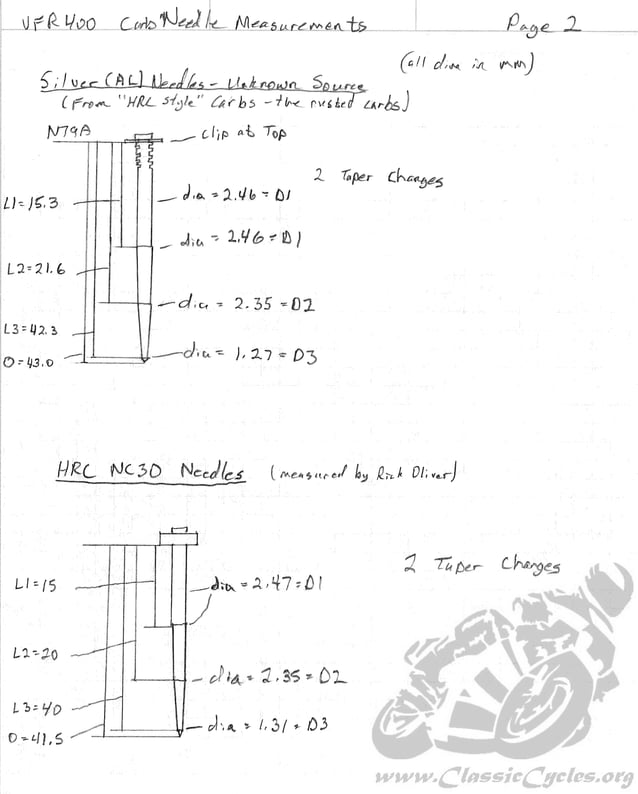 VFR400 Carb Needle Measurements Page 2
(all dim in mm)
Silver (AL) Needles - Unknown Source
(From "HRC style" carbs - the rusted carbs)
N79A
clip at Top
2 Taper Changes
L1=15.3
dia = 2.46 = D1
dia = 2.46 = D1
L2=21.6
dia = 2.35 = D2
L3=42.3
dia = 1.27 = D3
O=43.0
HRC NC30 Needles (measured by Rick Oliver)
2 Taper Changes
L1=15
dia = 2.47 = D1
L2=20
dia = 2.35 = D2
L3=40
dia = 1.31 = D3
O=41.5
www.ClassicCycles.org